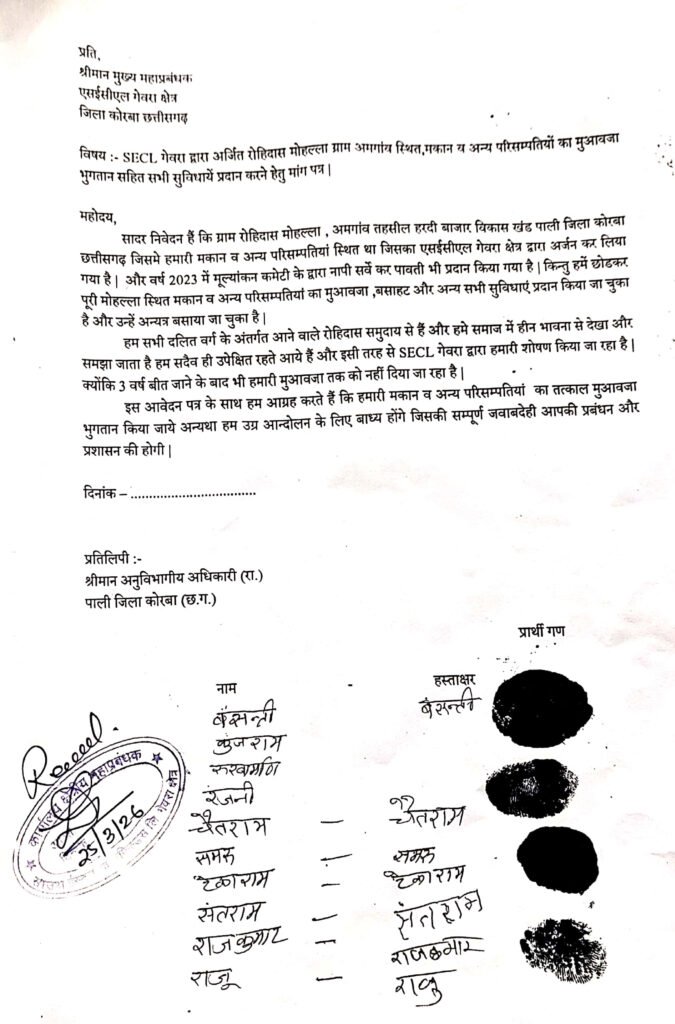 प्रति,
श्रीमान मुख्य महाप्रबंधक
एसईसीएल गेवरा क्षेत्र
जिला कोरबा छत्तीसगढ़
विषय :- SECL गेवरा द्वारा अर्जित रोहिदास मोहल्ला ग्राम अमगांव स्थित,मकान व अन्य परिसम्पतियों का मुआवजा
भुगतान सहित सभी सुविधायें प्रदान करने हेतु मांग पत्र |
महोदय,
सादर निवेदन हैं कि ग्राम रोहिदास मोहल्ला , अमगांव तहसील हरदी बाजार विकास खंड पाली जिला कोरबा
छत्तीसगढ़ जिसमे हमारी मकान व अन्य परिसम्पतियां स्थित था जिसका एसईसीएल गेवरा क्षेत्र द्वारा अर्जन कर लिया
गया है | और वर्ष 2023 में मूल्यांकन कमेटी के द्वारा नापी सर्वे कर पावती भी प्रदान किया गया है | किन्तु हमें छोडकर
पूरी मोहल्ला स्थित मकान व अन्य परिसम्पतियां का मुआवजा ,बसाहट और अन्य सभी सुविधाएं प्रदान किया जा चुका
है और उन्हें अन्यत्र बसाया जा चुका है |
हम सभी दलित वर्ग के अंतर्गत आने वाले रोहिदास समुदाय से हैं और हमे समाज में हीन भावना से देखा और
समझा जाता है हम सदैव ही उपेक्षित रहते आये हैं और इसी तरह से SECL गेवरा द्वारा हमारी शोषण किया जा रहा है |
क्योंकि 3 वर्ष बीत जाने के बाद भी हमारी मुआवजा तक को नहीं दिया जा रहा है |
इस आवेदन पत्र के साथ हम आग्रह करते हैं कि हमारी मकान व अन्य परिसम्पतियां का तत्काल मुआवजा
भुगतान किया जाये अन्यथा हम उग्र आन्दोलन के लिए बाध्य होंगे जिसकी सम्पूर्ण जवाबदेही आपकी प्रबंधन और
प्रशासन की होगी |
दिनांक – ..................................
प्रतिलिपी :-
श्रीमान अनुविभागीय अधिकारी (रा.)
पाली जिला कोरबा (छ.ग.)
प्रार्थी गण
नाम - हस्ताक्षर
बंसन्ती बंसन्ती
कुंजराम
रुखमणि
रंजनी
चैतराम – चैतराम
समरु – समरु
टेकाराम – टेकाराम
संतराम – संतराम
राजकुमार – राजकुमार
राजू – राजु
कार्यालय क्षेत्रीय महाप्रबंधक
25/3/26